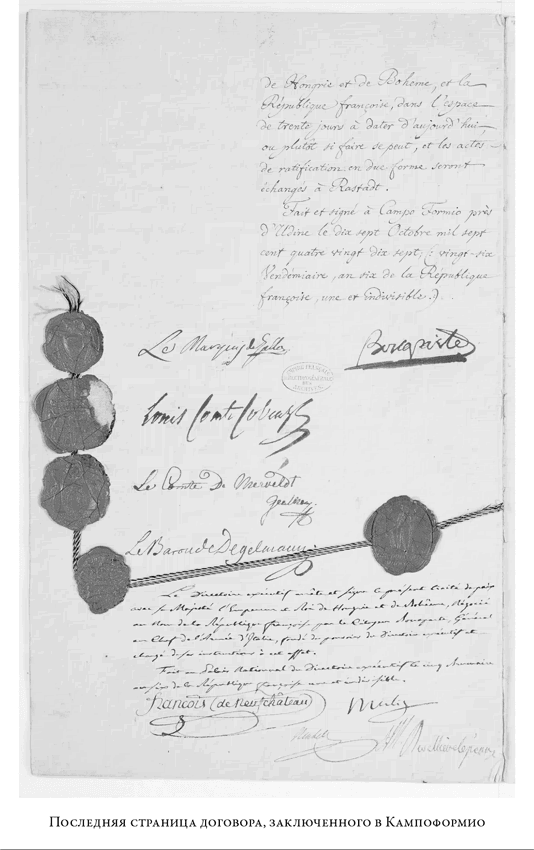 de Hongrie et de Boheme, et la
République françoise, dans l'espace
de trente jours à dater d'aujourd'hui
ou plutôt si faire se peut, et les actes
de ratification en due forme seront
échangés à Rastadt.
Fait et signé à Campo Formio près
d'Udine le dix sept Octobre mil sept
cent quatre vingt dix sept; (: vingt-six
Vendémiaire, an six de la République
françoise, une et indivisible.)
Le Marquis de Gallo
Bonaparte
Louis Comte Cobenzl
Le Comte De Merveldt
Le Baron de Degelmann
Le Directoire exécutif arrête et signe le présent traité de paix
avec sa Majesté l'Empereur et Roi de Hongrie et de Bohême, Négocié
au Nom de la République françoise, par le Citoyen Bonaparte, Général
en Chef de l'Armée d'Italie, fondé de pouvoirs du Directoire exécutif et
chargé de ses instructions à cet effet.
Fait au Palais National du Directoire exécutif le cinq Brumaire
an six de la République française une et indivisible.
François (de Neufchâteau)
Merlin
Последняя страница договора, заключенного в Кампоформио